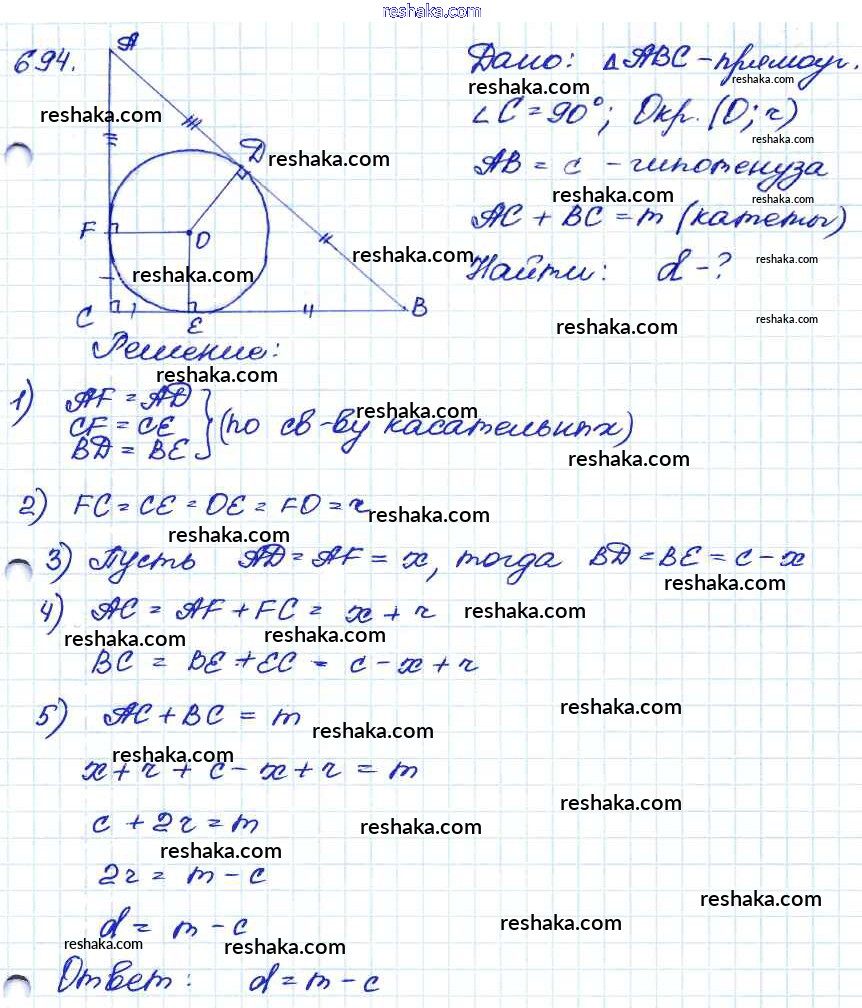 reshaka.com
694.
A
Дано: △ABC – прямоуг.
reshaka.com
reshaka.com
reshaka.com
∠C = 90°; Окр. (O; r)
reshaka.com
D
reshaka.com
AB = c – гипотенуза
reshaka.com
reshaka.com
F
O
AC + BC = m (катеты)
reshaka.com
reshaka.com
Найти: d – ?
reshaka.com
reshaka.com
C
E
B
reshaka.com
reshaka.com
Решение:
reshaka.com
1) AF = AD
CF = CE
BD = BE
} (по св-ву касательных)
reshaka.com
reshaka.com
2) FC = CE = OE = FO = r
reshaka.com
reshaka.com
3) Пусть AD = AF = x, тогда BD = BE = c – x
reshaka.com
4) AC = AF + FC = x + r
reshaka.com
reshaka.com
reshaka.com
BC = BE + EC = c – x + r
5) AC + BC = m
reshaka.com
reshaka.com
reshaka.com
x + r + c – x + r = m
reshaka.com
c + 2r = m
reshaka.com
reshaka.com
2r = m – c
reshaka.com
d = m – c
reshaka.com
reshaka.com
reshaka.com
Ответ: d = m – c
reshaka.com